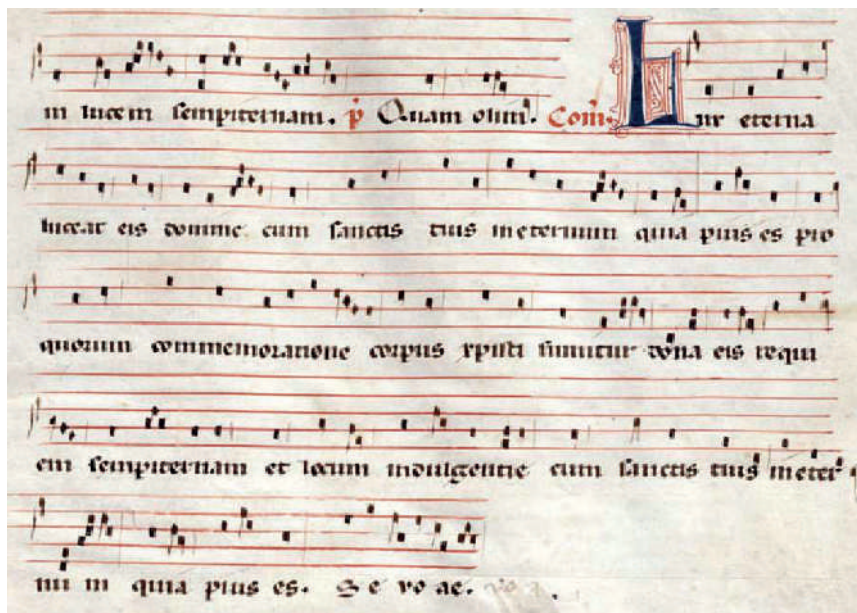 in lucem sempiternam. p Quam olim. Com. Lux eterna
luceat eis domine cum sanctis tuis in eternum quia pius es pro
quorum commemoratione corpus xpisti sumitur dona eis requi
em sempiternam et locum indulgentie cum sanctis tuis in eter
nu m quia pius es. S e vo ae.